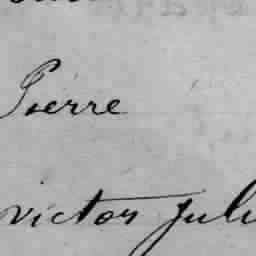 Pierre
victor Juli